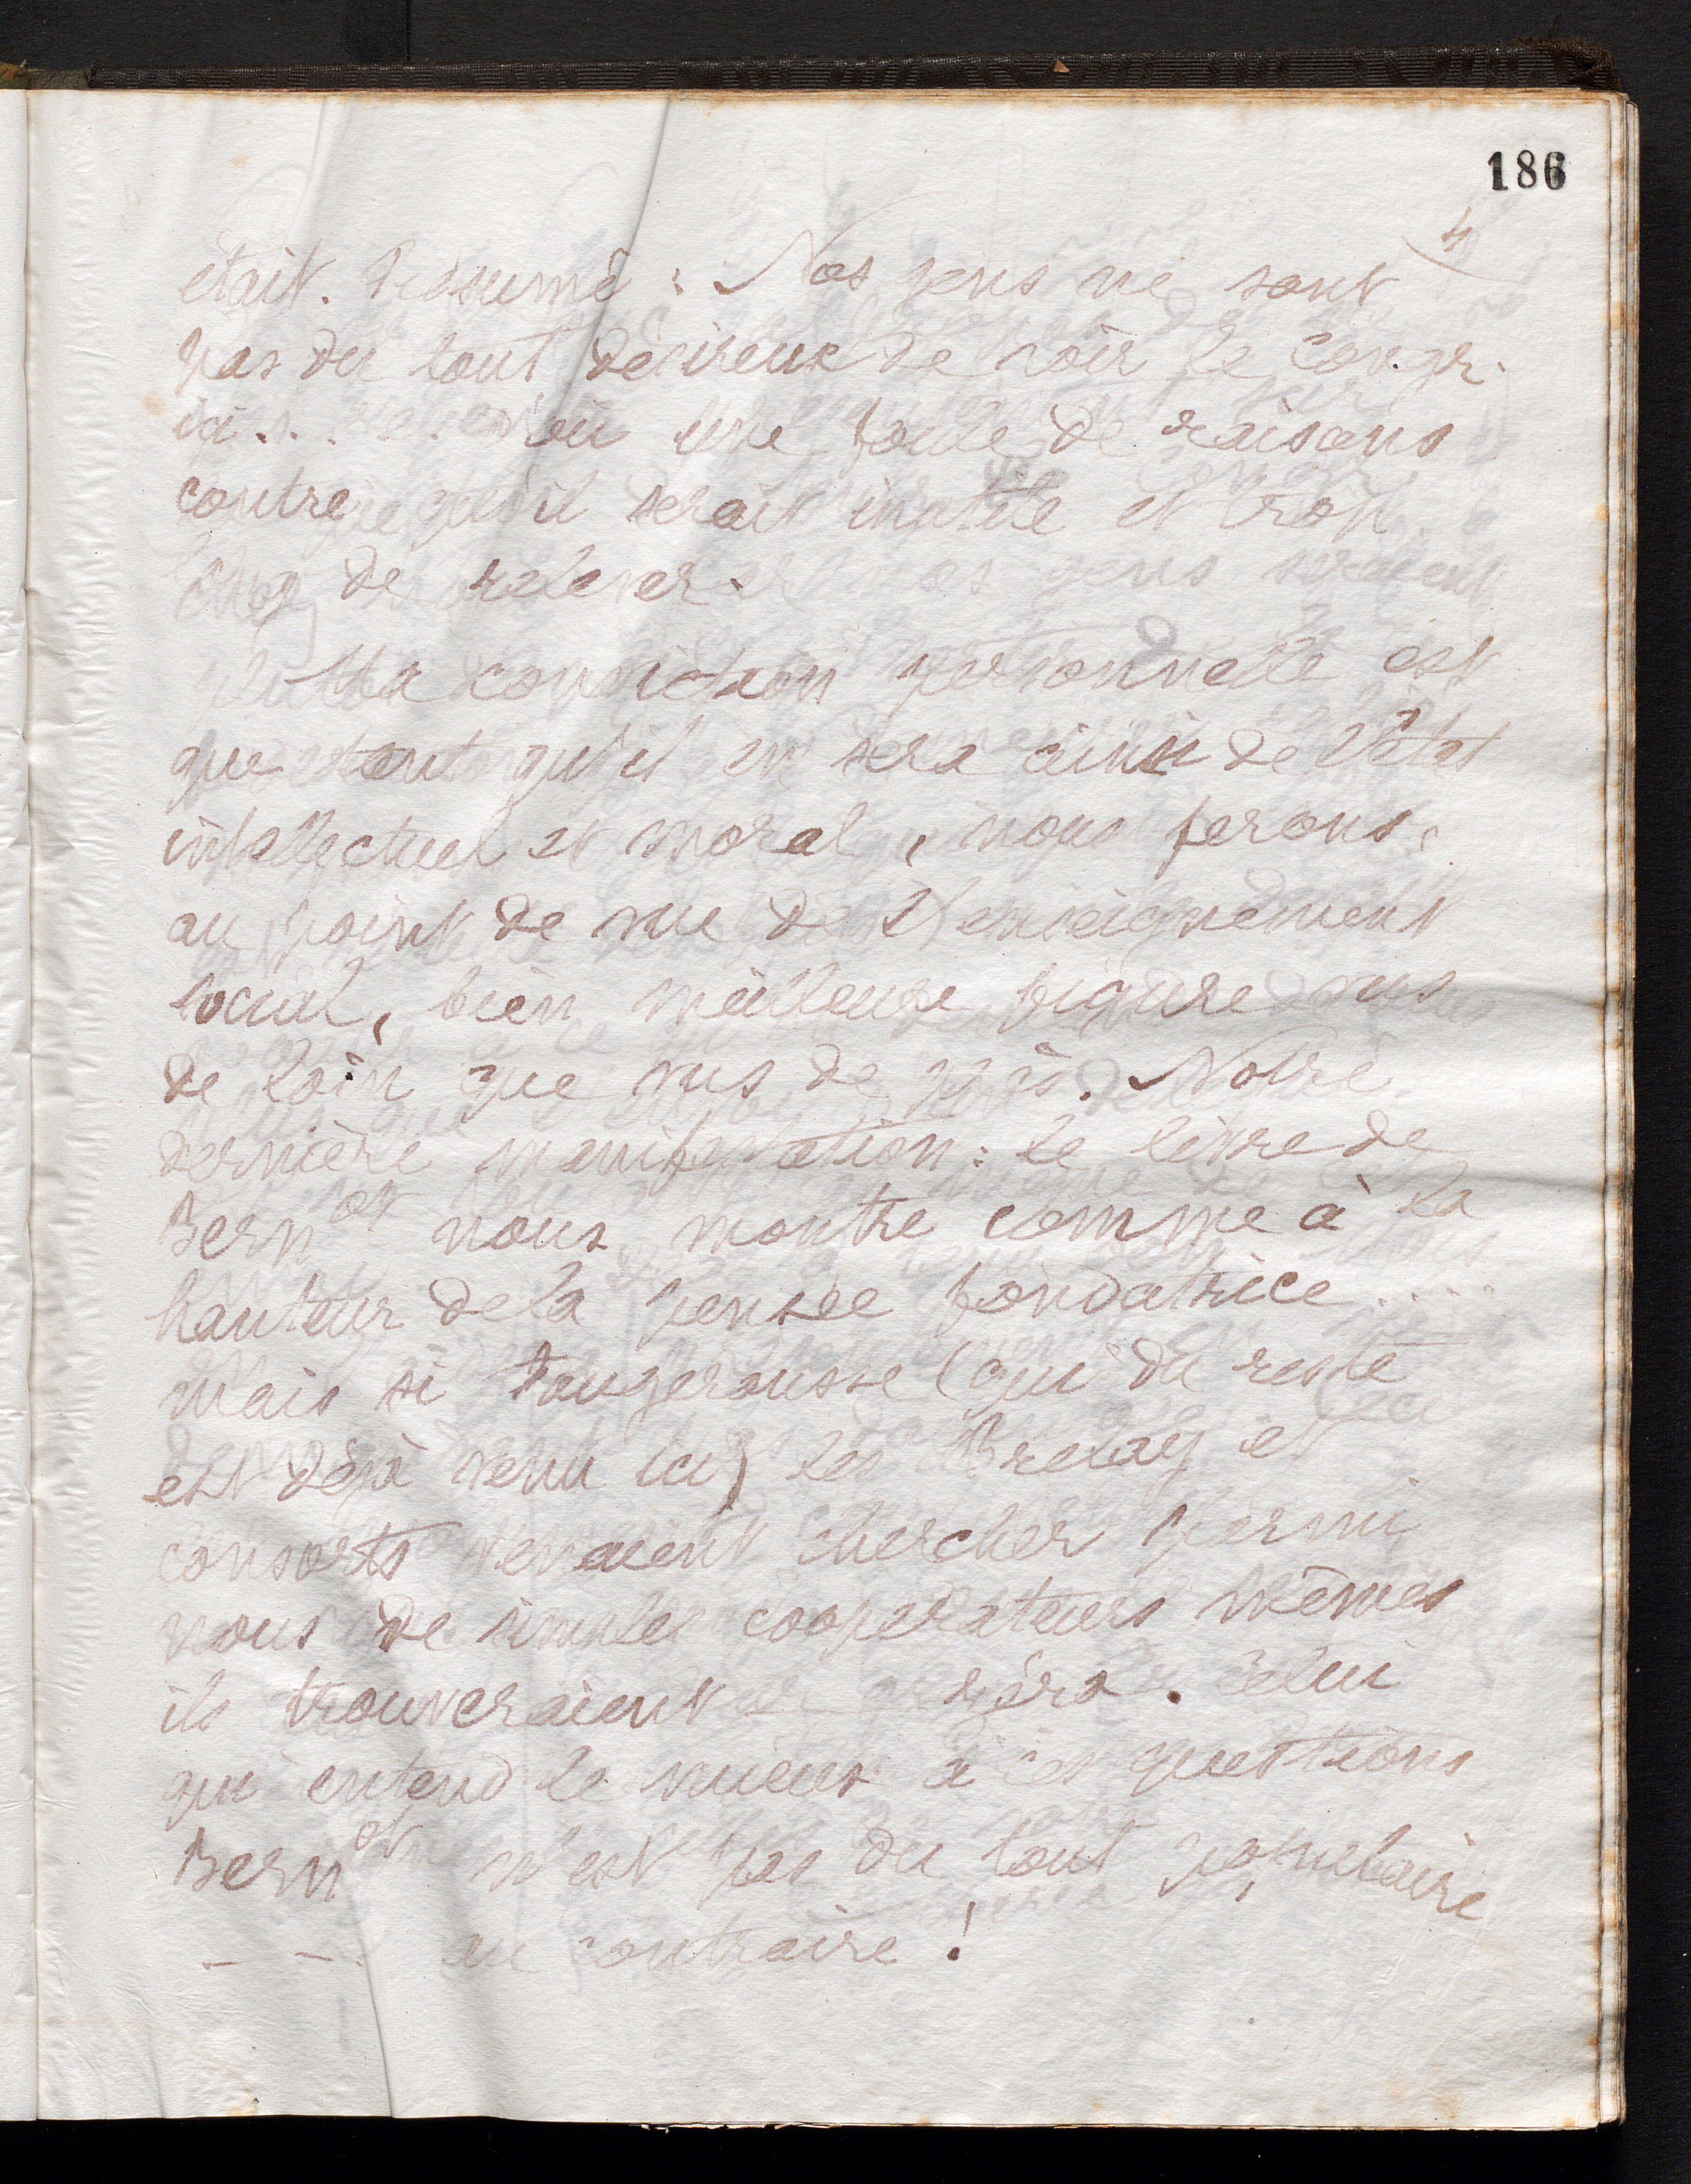 186
4
était. Résumé : Nos gens ne sont
pas du tout désireux de voir le congr.
ici . . . . d'où une foule de raisons
contre qu'il serait inutile et trop
long de relever.
Ma conviction personnelle est
que tant qu'il en sera ainsi de l'état
intellectuel et moral, nous ferons,
au point de vue de l'enseignement
social, bien meilleure figure vus
de loin que vus de près. Notre
dernière manifestation : le livre de
Bernot nous montre comme à la
hauteur de la pensée fondatrice ....
mais si Fougerousse (qui du reste
est déjà venu ici) les Brelay et
consorts venaient chercher parmi
nous de simples coopérateurs mêmes
ils trouveraient zéro. Celui
qui entend le mieux à ces questions
Bernot n'est pas du tout populaire
_ _ . au contraire !